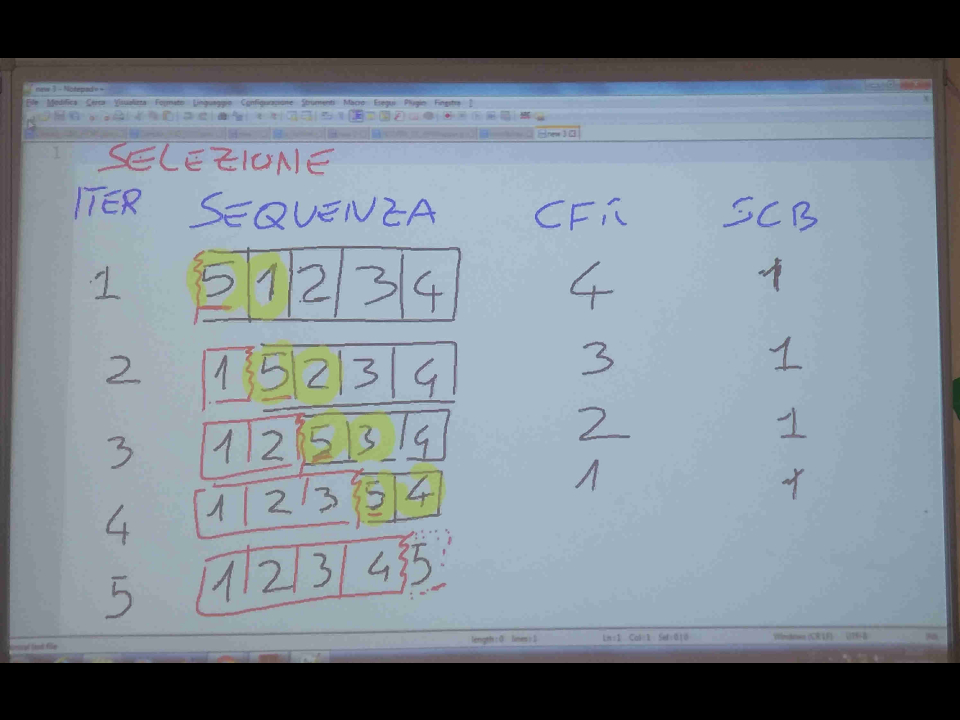 new 3 - Notepad++
File Modifica Cerca Visualizza Formato Linguaggio Configurazione Strumenti Macro Esegui Plugin Finestra ?
new 3
1
SELEZIONE
ITER SEQUENZA CFR SCB
1 5 1 2 3 4 4 1
2 1 5 2 3 4 3 1
3 1 2 5 3 4 2 1
4 1 2 3 5 4 1 1
5 1 2 3 4 5
length : 0 lines : 1 Ln : 1 Col : 1 Sel : 0 | 0